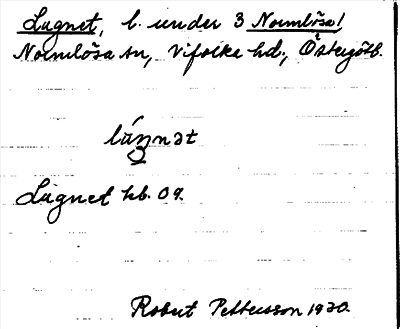 Lugnet, l. under 3 Normlösa!
Normlösa sn, Vifolka hd., Östergötl.
Lugnet hb. 09.
Robert Pettersson 1930.